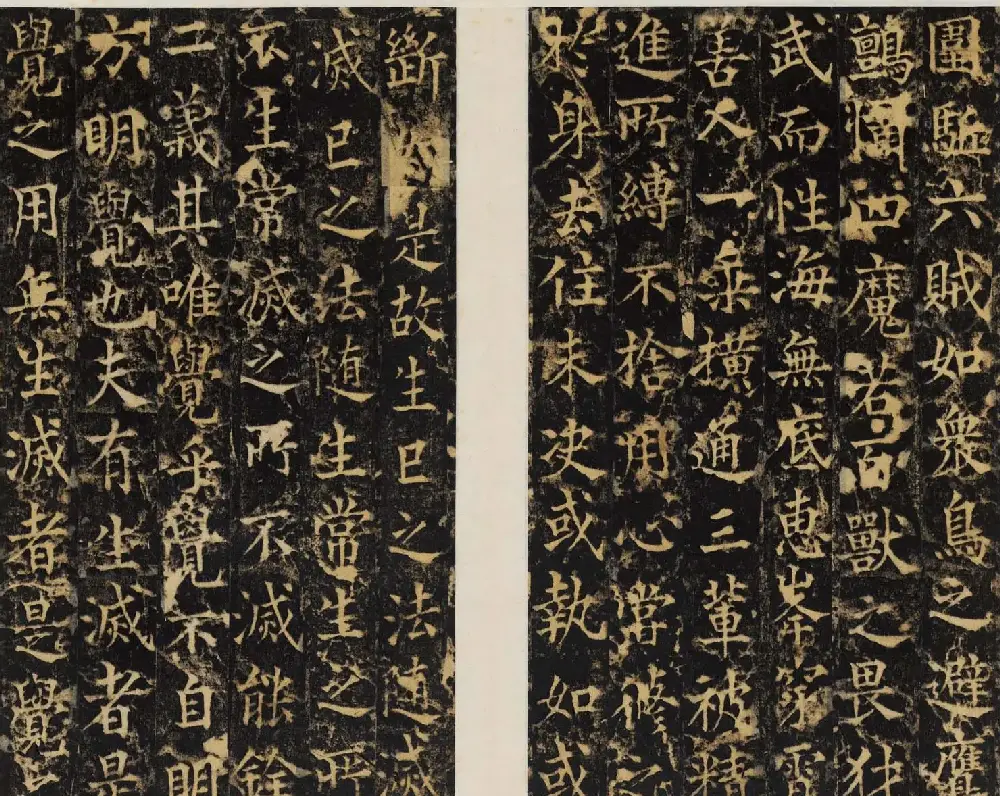 圍駈六賊如衆鳥之避鷹
鸇四魔若百獸之畏
武而性海無底惠岑窮
善人一乘橫通三輩被精
進所縛不捨用心常之
於身去住未决或執如或
斷是故生已之法随滅
滅已之法随生常生之所
不生常滅之所不滅能餘
二義其唯覺乎覺不自明
方明覺也夫有生滅者是
覺之用無生滅者是覺